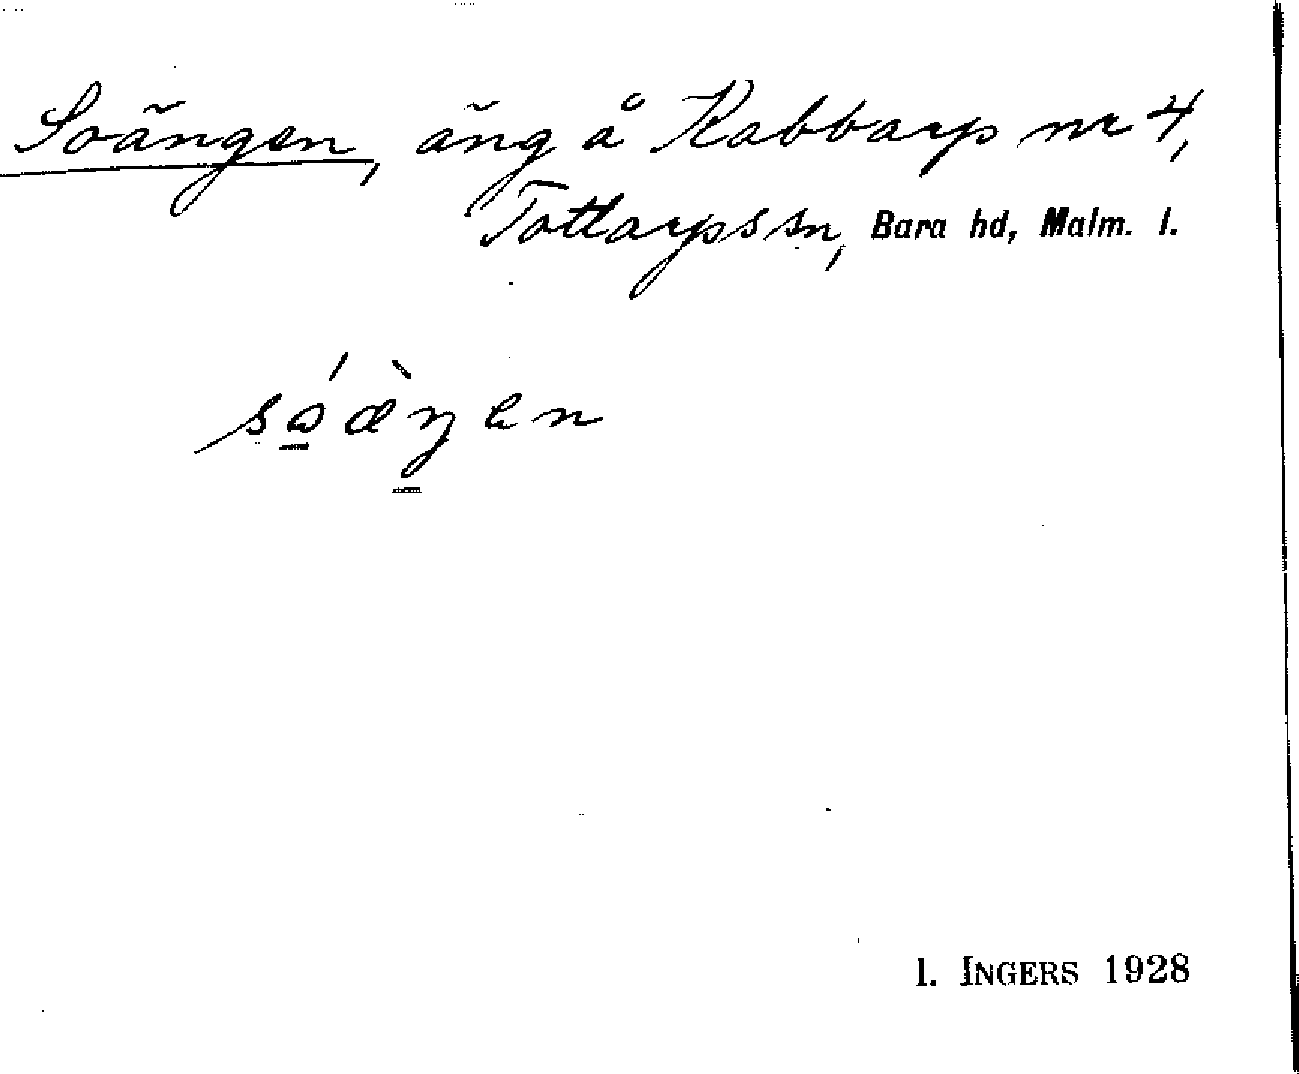 Soängen, äng å Kabbarp nr 4,
Tottarps sn, Bara hd, Malm. l.
I. INGERS 1928